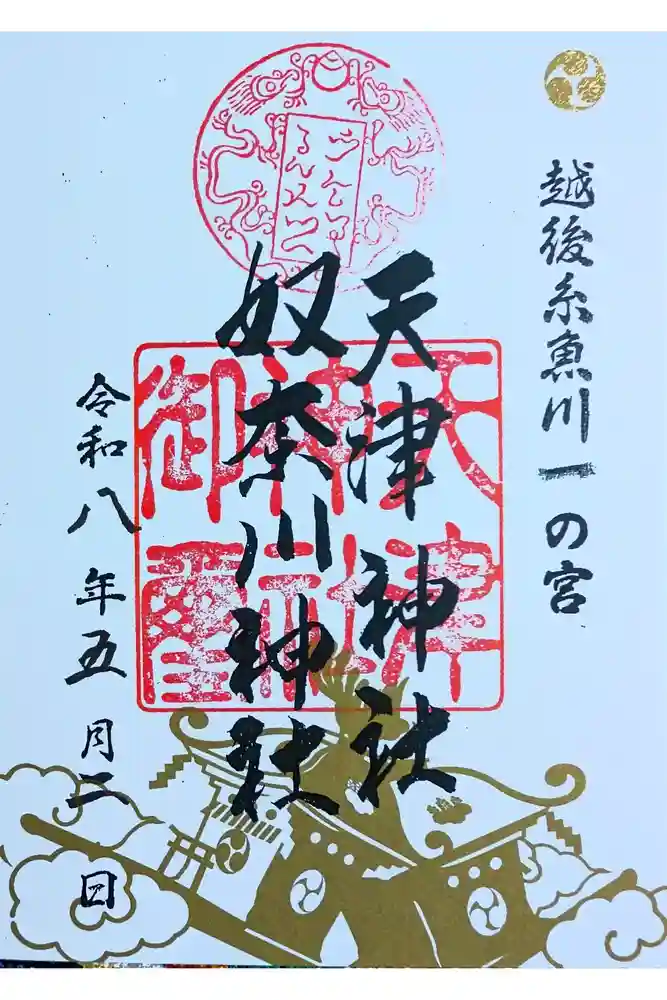 越後糸魚川一の宮
天津神社
奴奈川神社
天津
神社
御璽
令和八年五月二日